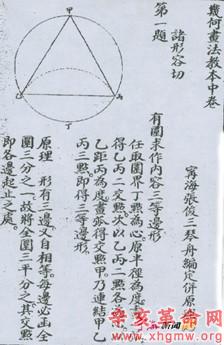 幾何畫法教本中卷
寧海張俊三琴舟編定併原繪
第一題
諸形容切
有圓求作內容三等邊形
任取圓界丁點爲心原半徑爲度畫弧
得乙丙二交點次以乙丙二點各爲心
乙距丙爲度畫弧得交點甲乃連結甲乙
丙三點即得三等邊形
原理 形有三邊又自相等每邊必函全
圓三分之一故將全圓三平分之其交點
即各邊起止之處
甲
乙
丙
丁
辛亥革命网